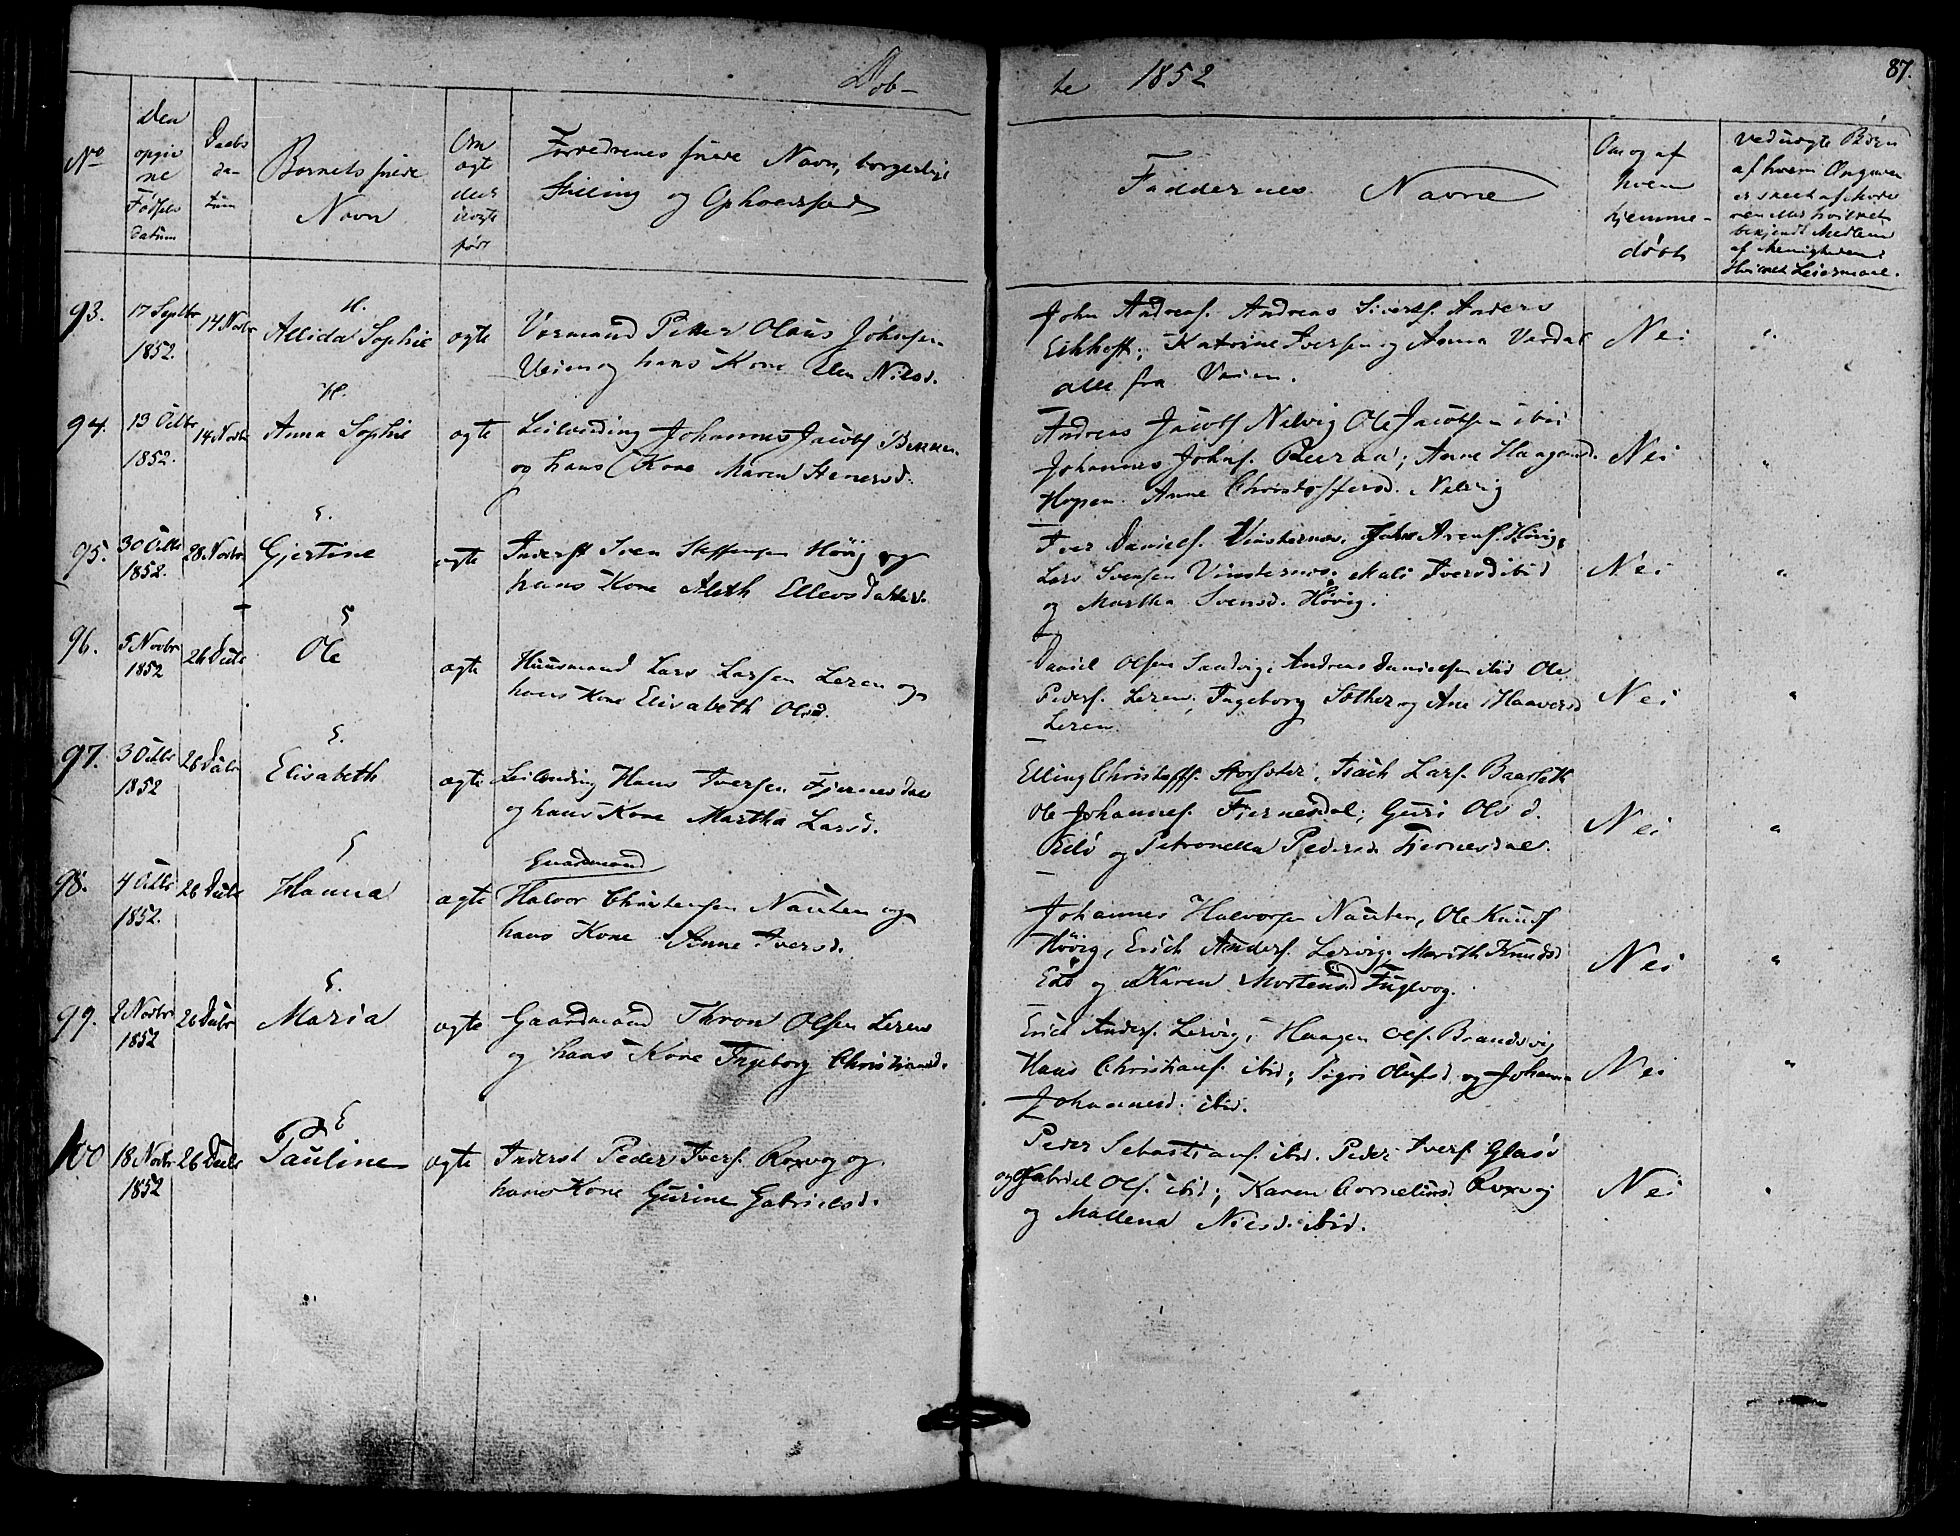 Døb-
te 1852
87.
No
Den opgivne Fødsels Datum
Daabs datum
Barnets fulde Navn
Om ægte eller uægte født
Forældrenes fulde Navn, borgerlige Stilling og Opholdssted
Faddernes Navne
Om og af hvem hjemmedøbt
Ved uægte Børn af hvem Angivelsen er skeet af Moderen eller hvilket bekjendt Medlem af Menigheden. Hvilket Leiermaal.
93.
17 Septbr 1852.
14 Novbr
H.
Allida Sophie
ægte
Vormand Petter Olaus Johnsen
Veien og hans Kone Elen Nilsd.
John Andreas. Andreas Sivertsf. Anders
Eikhoff; Katrine Iversen og Anna Vardal
alle fra Veien.
Nei
"
94.
13 Octbr 1852.
14 Novbr
H.
Anna Sophie
ægte
Leilending Johannes Jacobs. Bekken
og hans Kone Maren Stenersd.
Andreas Jacobs Nelvig Ole Jacobsen ibid
Johannes Johns. ; Anne Haagensd.
Hopen. Anne Christoffersd. Nelvig
Nei
"
95.
30 Octbr 1852.
28 Novbr
S.
Gjertine
ægte
Inderst Sven Steffensen Høvig og
hans Kone Aleth Ellevsdatter.
Iver Daniels. Vinsternes, John Arens. Høvig,
Lars Svensen Vinsternes. Mali Iversd ibid
og Martha Svensd. Høvig.
Nei
"
96.
5 Novbr 1852
26 Decbr
S
Ole
ægte
Huusmand Lars Larsen Leren og
hans Kone Elisabeth Olsd.
Daniel Olsen Sandvig, Andreas Danielsen ibid Ole
Peders. Leren, Ingeborg Sæther og Ane Haaversd
Leren
Nei
"
97.
3 Octbr 1852
26 Decbr
S.
Elisabeth
ægte
Leilending Hans Iversen Fjernesdal
og hans Kone Martha Larsd.
Elling Christoffs. Storsæter, Isach Lars. Baarseth
Ole Johannes. Fjernesdal; Guri Olsd.
Edø og Petronella Pedersd. Fjernesdal.
Nei
"
98.
4 Octbr 1852.
26 Decbr
S
Hanna
ægte
Gaardmand
Halvor Christensen Nausten og
hans Kone Anne Iversd.
Johannes Halvorsen Nausten, Ole Knuds
Høvig, Erich Anders. Lervig, Marith Knudsd
Edø og Karen Mortensd Fuglvog.
Nei
"
99.
2 Novbr 1852
26 Decbr
S.
Maria
ægte
Gaardmand Thron Olsen Leren
og hans Kone Ingeborg Christiansd.
Erich Anders. Lervig, Haagen Ols. Brandsvig
Hans Christians. ibid; Sigri Olufsd. og Johanna
Johannesd. ibid.
Nei
"
100
18 Novbr 1852
26 Decbr
S
Pauline
ægte
Inderst Peder Ivers. Roxvog og
hans Kone Gurine Gabrielsd.
Peder Sebastians. ibid. Peder Ivers. Glasø
og Gabriel Ols. ibid; Karen Cornelinsd Roxvog
og Mallena Nielsd. ibid.
Nei
"